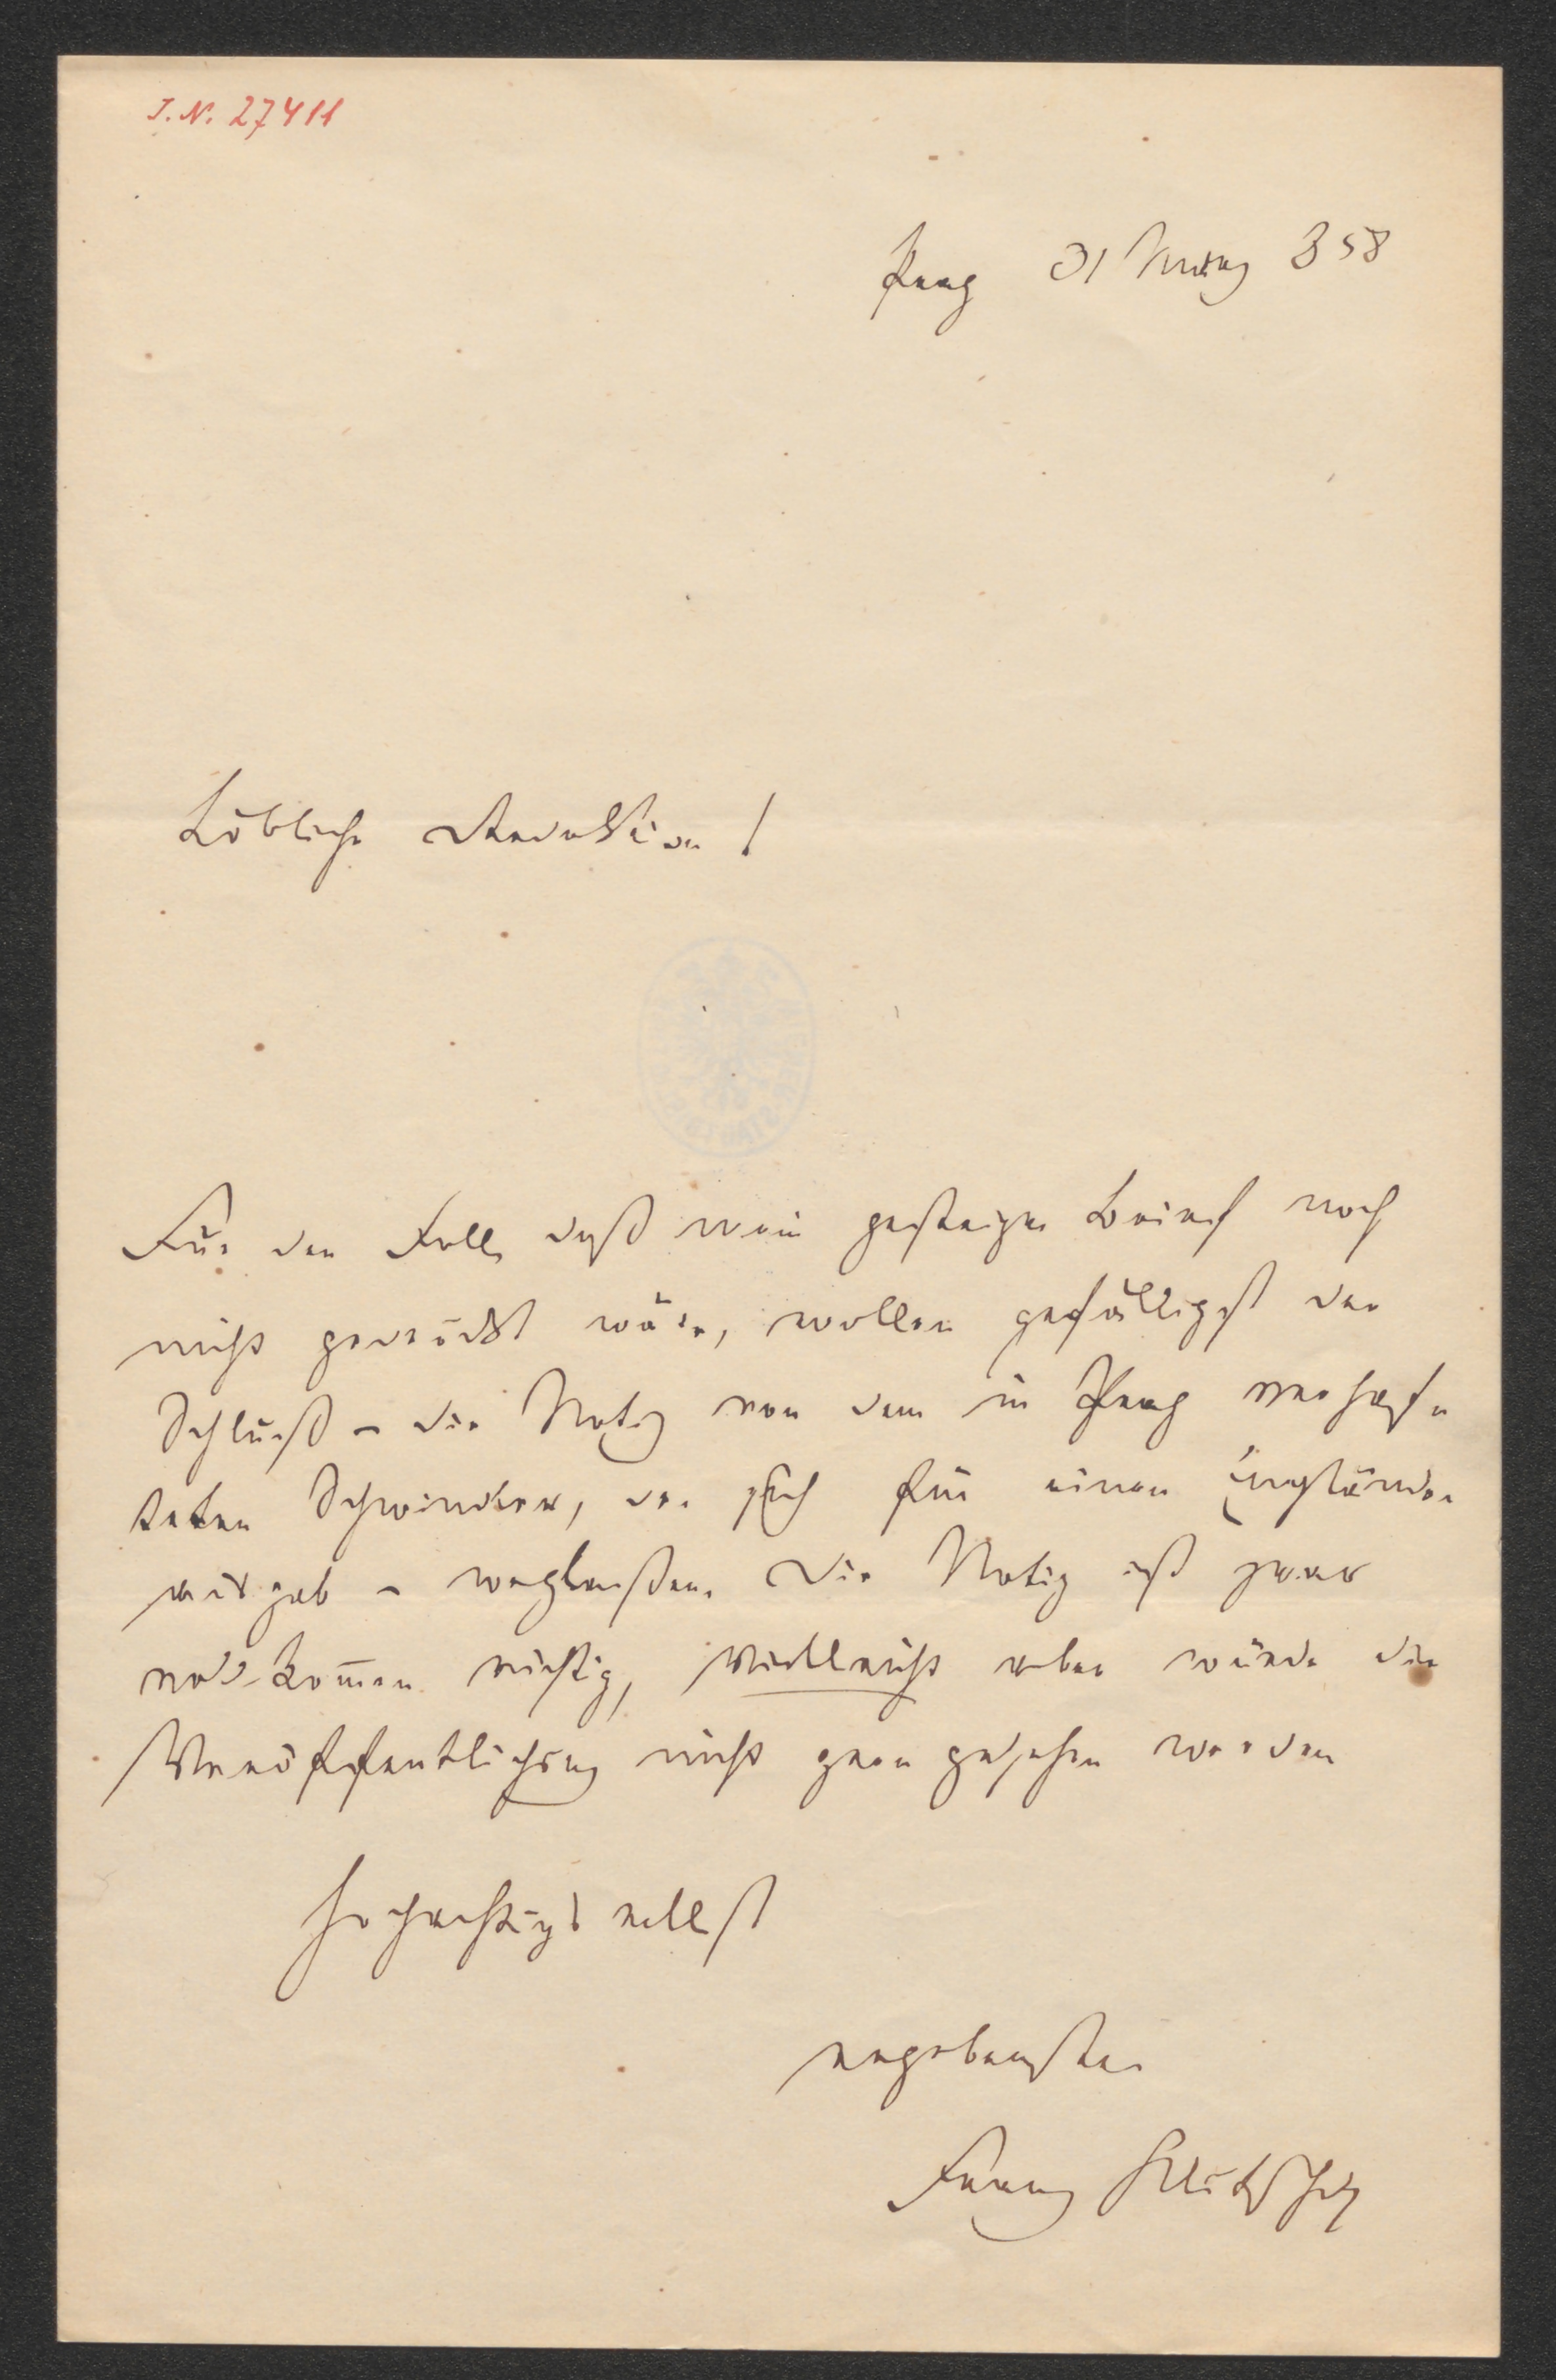 I. N. 27411
Prag 31 März 858
Löbliche Redaktion!
Für den Fall, daß mein gestriger Brief noch
nicht gedruckt wäre, wollen gefälligst den
Schluß – die Notiz von dem in Prag verhaf-
teten Schwindler, der sich für einen Engländer
ausgab – weglassen. Die Notiz ist zwar
vollkom̅en richtig, vielleicht aber würde die
Veröffentlichung nicht gern gesehen werden
Hochachtungsvollst
ergebenster
Franz Klutschak